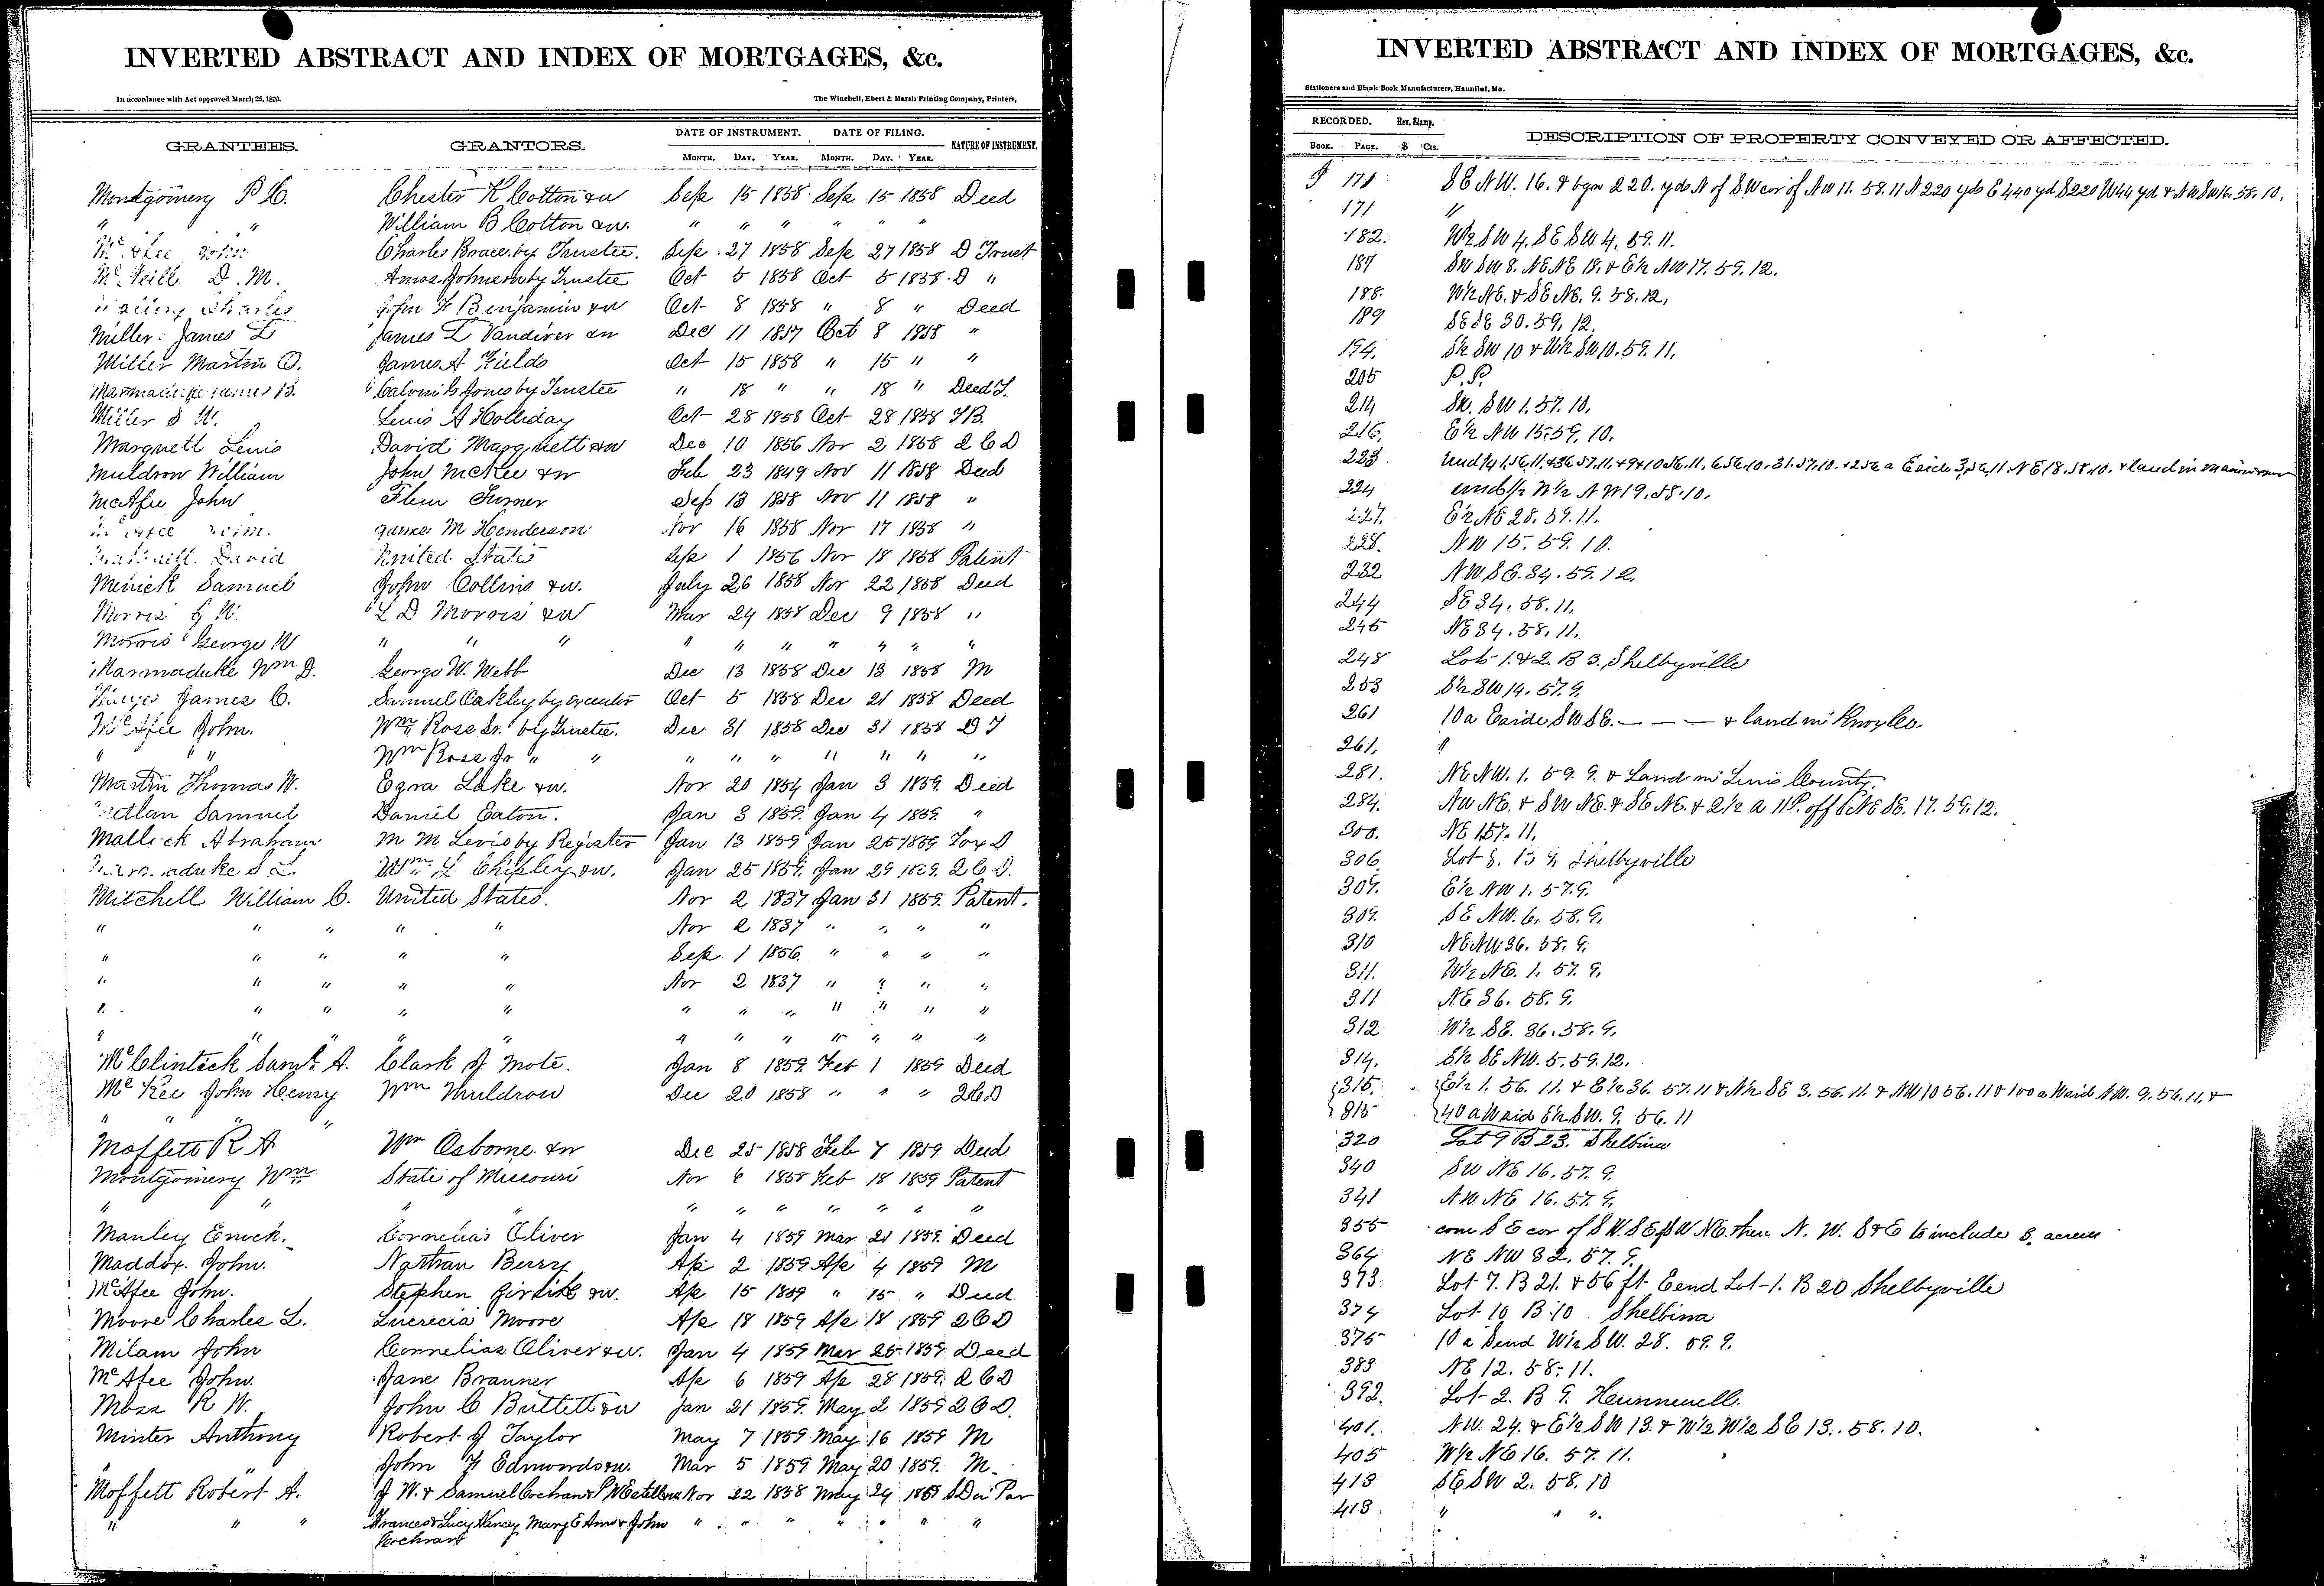 INVERTED ABSTRACT AND INDEX OF MORTGAGES, &c.
In accordance with Act approved March 25, 1870.
The Winchell, Ebert & Marsh Printing Company, Printers,
GRANTEES.
GRANTORS.
DATE OF INSTRUMENT.
DATE OF FILING.
NATURE OF INSTRUMENT.
MONTH. DAY. YEAR. MONTH. DAY. YEAR.
Montgomery P H. Chester K Cotton &w Sep 15 1858 Sep 15 1858 Deed
" " William B Cotton &w. " " " " " "
McAfee John Charles Brace by Trustee. Sep. 27 1858 Sep 27 1858 D Trust
McNeill D. M. Amos Johnson by Trustee Oct 5 1858 Oct 5 1858 D "
Charles John F Benjamin &w Oct 8 1858 " 8 " Deed
Miller James L James L Vandiver &w Dec 11 1857 Oct 8 1858 "
Miller Martin O. James A Fields Oct 15 1858 " 15 " "
Marmaduke James B. Calvin G Jones by Trustee " 18 " " 18 " Deed T.
Miller S W. Lewis A Holliday Oct 28 1858 Oct 28 1858 TB
Marquett Lewis David Marquett &w Dec 10 1856 Nov 2 1858 QCD
Muldrow William John McKee &w Feb 23 1849 Nov 11 1858 Deed
McAfee John Flem Turner Sep 13 1858 Nov 11 1858 "
James M Henderson Nov 16 1858 Nov 17 1858 "
David United States Sep 1 1856 Nov 18 1858 Patent
Minick Samuel John Collins &w. July 26 1858 Nov 22 1858 Deed
Morris G W. L D Morris &w Mar 24 1858 Dec 9 1858 "
Morris George W " " " " " " " " " "
Marmaduke Wm D. George W. Webb Dec 13 1858 Dec 13 1858 M
James C. Samuel Oakley by Executor Oct 5 1858 Dec 21 1858 Deed
McAfee John. Wm Rose Sr. by Trustee. Dec 31 1858 Dec 31 1858 D T
" " Wm Rose Jr " " " " " " " " "
Martin Thomas W. Ezra Lake &w. Nov 20 1854 Jan 3 1859 Deed
Samuel Daniel Eaton. Jan 3 1859 Jan 4 1859 "
Mallick Abraham M M Levis by Register Jan 13 1859 Jan 25 1859 Tax D
Marmaduke S L. Wm L Chipley &w. Jan 25 1859 Jan 29 1859 QCD.
Mitchell William C. United States. Nov 2 1837 Jan 31 1859 Patent.
" " " " " Nov 2 1837 " " " "
" " " " " Sep 1 1856 " " " "
" " " " " Nov 2 1837 " " " "
" " " " " " " " " " " "
" " " " " " " " " " " "
McClintick Saml A. Clark J Mote. Jan 8 1859 Feb 1 1859 Deed
McKee John Henry Wm Muldrow Dec 20 1858 " " " QCD
" " "
Moffett R A Wm Osborne &w Dec 25 1858 Feb 7 1859 Deed
Montgomery Wm State of Missouri Nov 6 1858 Feb 18 1859 Patent
" " " " " " " " " "
Manley Enoch. Cornelius Oliver Jan 4 1859 Mar 21 1859 Deed
Maddox. John. Nathan Berry Ap 2 1859 Ap 4 1859 M
McAfee John. Stephen &w. Ap 15 1859 " 15 " Deed
Moore Charles L. Lucrecia Moore Ap 18 1859 Ap 18 1859 QCD
Milam John Cornelius Oliver &w. Jan 4 1859 Mar 25 1859 Deed
McAfee John. Jane Branner Ap 6 1859 Ap 28 1859 QCD
Moss R W. John C &w Jan 21 1859 May 2 1859 QCD.
Minter Anthony Robert J Taylor May 7 1859 May 16 1859 M
John F Edmunds &w. Mar 5 1859 May 20 1859 M.
Moffett Robert A. J W. & Samuel Cochran & Nov 22 1858 May 24 1858 D in Par
" " " Frances & Lucy Nancy Mary E Ann & John " " " " " " "
Cochran
INVERTED ABSTRACT AND INDEX OF MORTGAGES, &c.
Stationers and Blank Book Manufacturers, Hannibal, Mo.
RECORDED. Rev. Stamp.
DESCRIPTION OF PROPERTY CONVEYED OR AFFECTED.
BOOK. PAGE. $ Cts.
171 SE NW. 16. & bgn 220. yds N of SW cor of NW 11. 58. 11 N 220 yds E 440 yd S 220 W 44 yd & NW SW 16. 58. 10.
171 "
182. W½ SW 4. SE SW 4. 59. 11.
187 SW SW 8. NE NE 18. & E½ NW 17. 59. 12.
188. W½ NE. & SE NE. 9. 58. 12.
189 SE SE 30. 59. 12.
194. S½ SW 10 & W½ SW 10. 59. 11.
205 P. P.
214 SW. SW 1. 57. 10.
216. E½ NW 15. 59. 10.
223
224 und ½ W½ NW 19. 58. 10.
227. E½ NE 28. 59. 11.
228. NW 15. 59. 10.
232 NW SE. 34. 59. 12.
244 SE 34. 58. 11.
245 NE 34. 58. 11.
248 Lots 1. & 2. B 3. Shelbyville
253 S½ SW 14. 57. 9.
261 10 a E side SW SE. — — — & land in Knox Co.
261. "
281. NE NW. 1. 59. 9. & Land in Lewis County.
284. NW NE. & SW NE. & SE NE. & 2½ a 11 P. off S NE SE. 17. 59. 12.
300. NE 1. 57. 11.
306. Lot 8. B 9. Shelbyville
307. E½ NW 1. 57. 9.
309. SE NW. 6. 58. 9.
310 NE NW 36. 58. 9.
311. W½ NE. 1. 57. 9.
311 NE 36. 58. 9.
312 W½ SE. 36. 58. 9.
314. S½ SE NW. 5. 59. 12.
315. E½ 1. 56. 11. & E½ 36. 57. 11 & N½ SE 3. 56. 11. & NW 10 56. 11 & 100 a W side NW. 9. 56. 11. &
315 40 a W side E½ SW. 9. 56. 11
320 Lot 9 B 23. Shelbina
340 SW NE 16. 57. 9.
341 NW NE 16. 57. 9.
355 com S E cor of S W. SE SW NE. then N. W. S & E to include 8. acres
364 NE NW 32. 57. 9.
373 Lot 7. B 21. & 56 ft. E end Lot 1. B 20 Shelbyville
374 Lot 10 B 10 Shelbina
375 10 a S end W½ SW. 28. 59. 9.
383 NE 12. 58. 11.
392. Lot 2. B 9. Hunnewell.
401. NW. 24. & E½ SW 13. & W½ W½ SE 13. 58. 10.
405 W½ NE 16. 57. 11.
413 SE SW 2. 58. 10
413 " " "